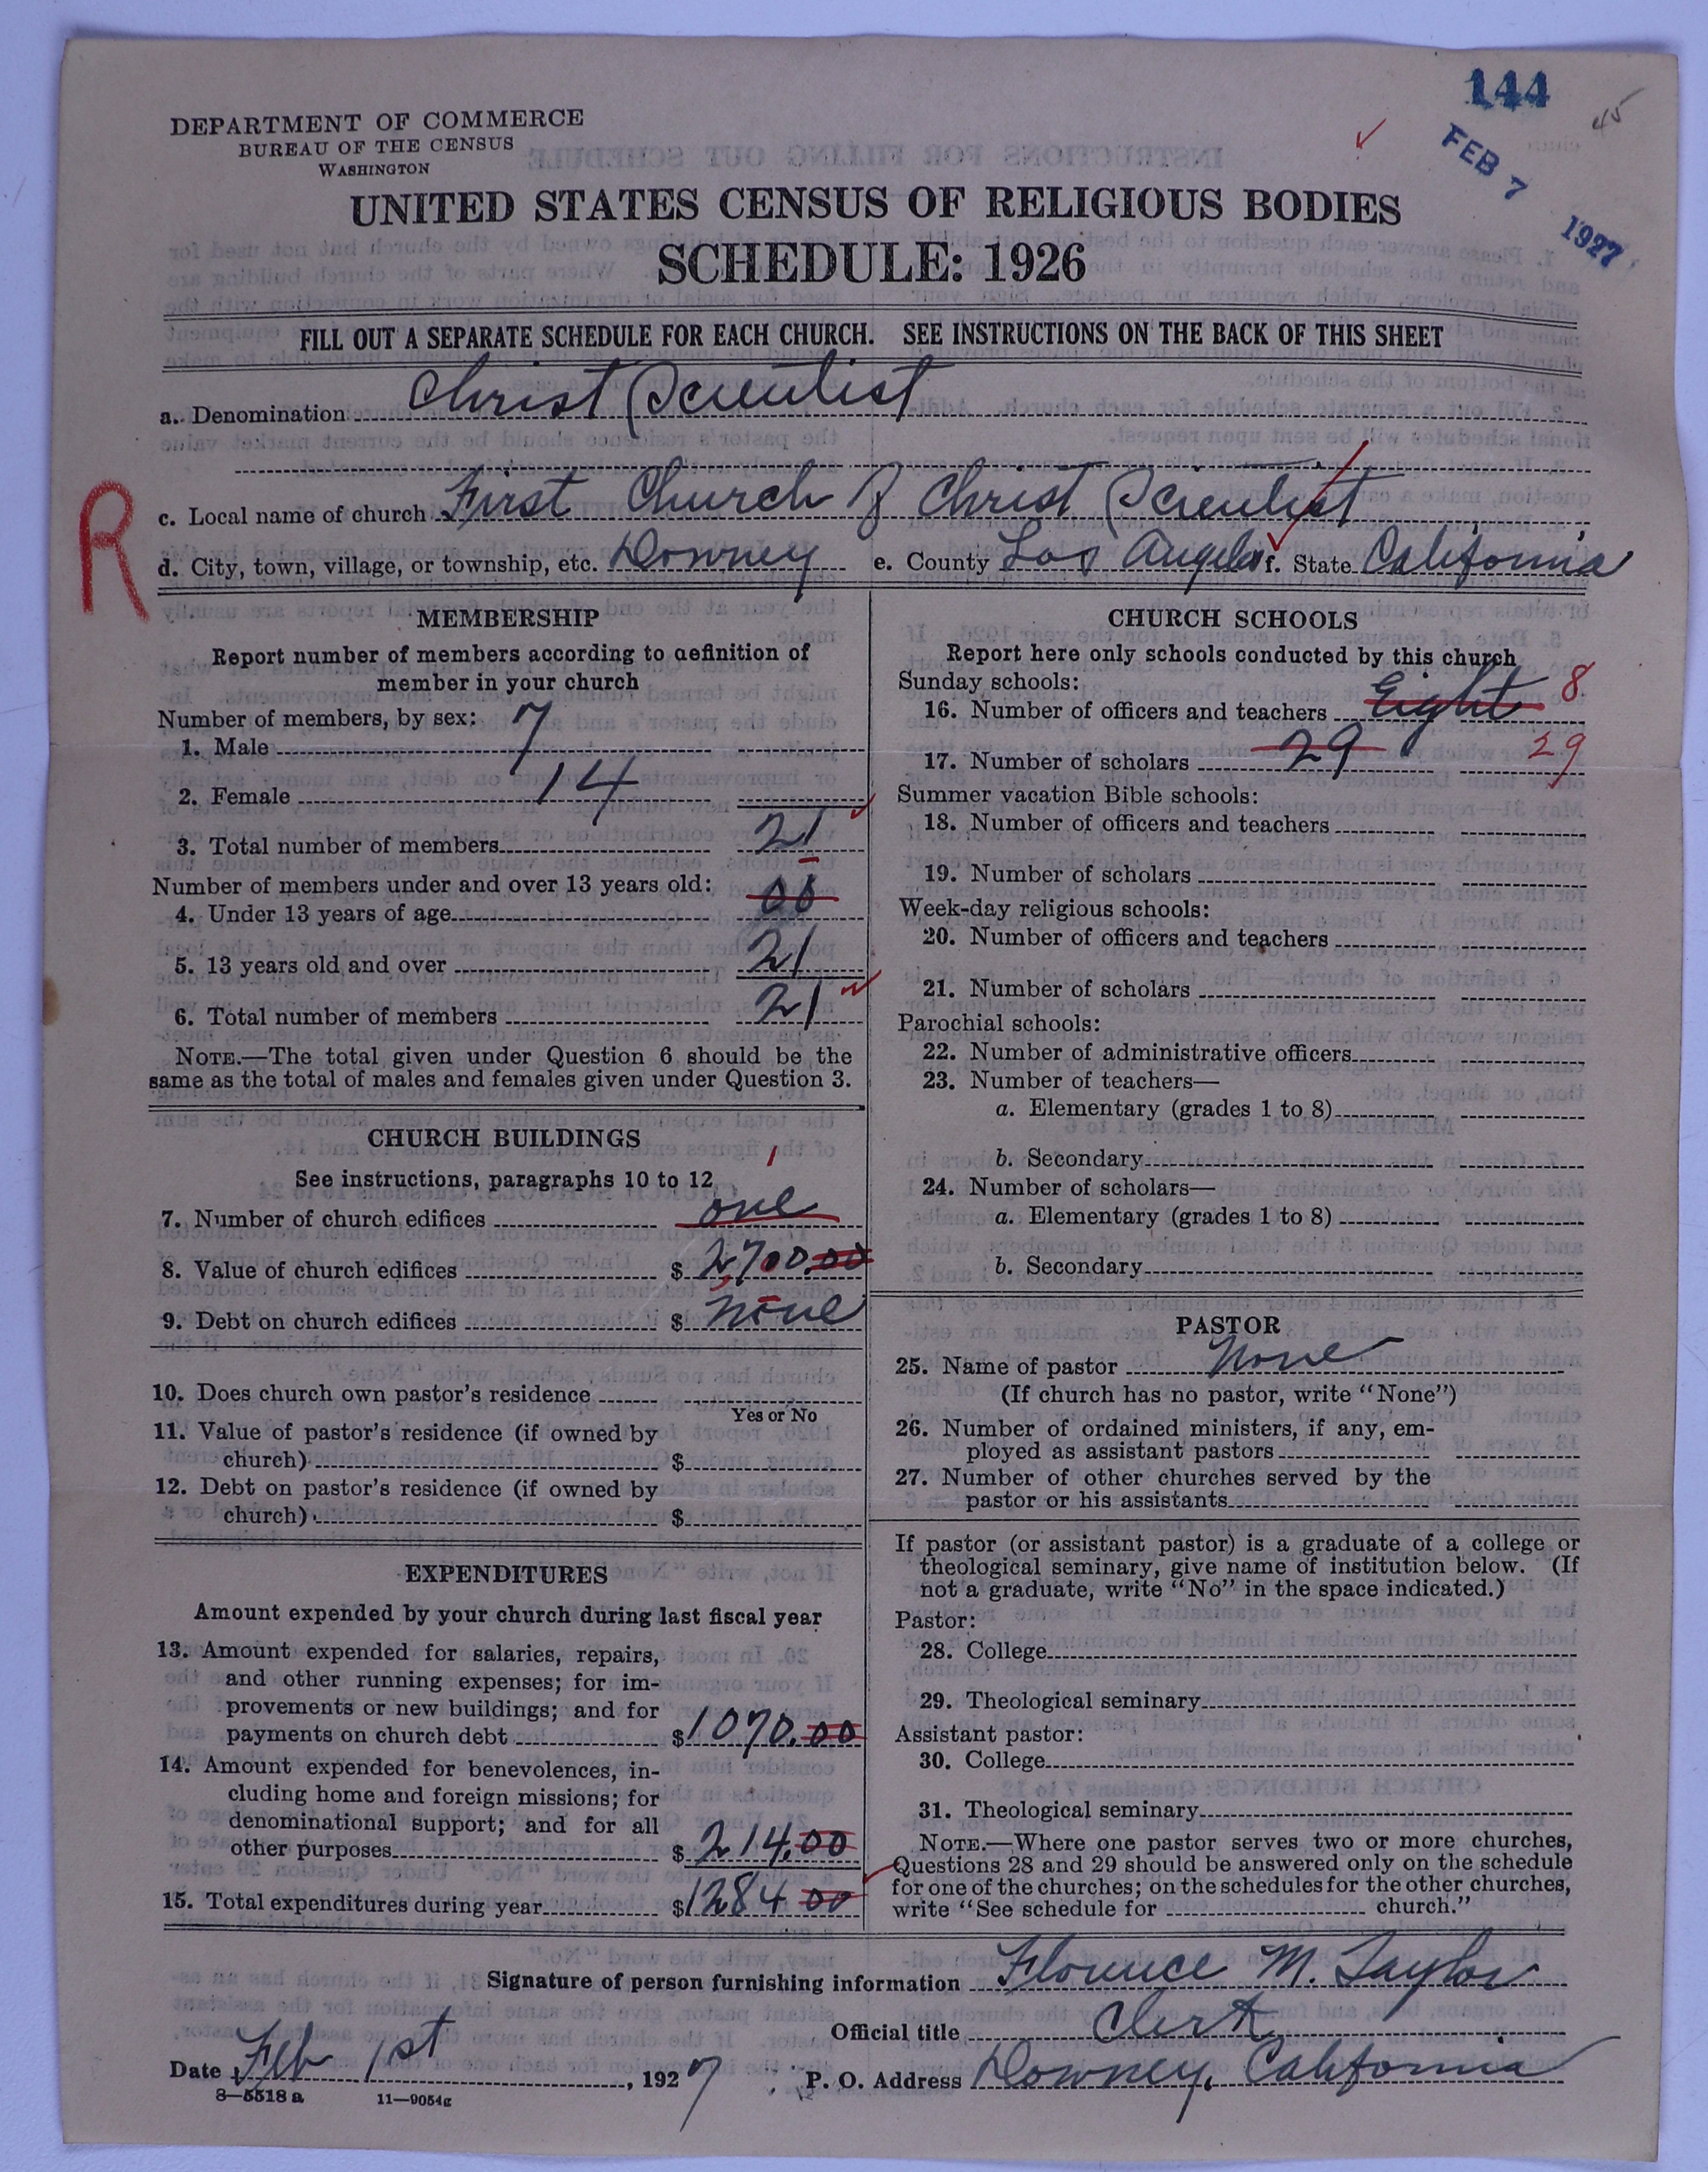 144
45
FEB 7 1927
DEPARTMENT OF COMMERCE
BUREAU OF THE CENSUS
WASHINGTON
UNITED STATES CENSUS OF RELIGIOUS BODIES
SCHEDULE: 1926
FILL OUT A SEPARATE SCHEDULE FOR EACH CHURCH. SEE INSTRUCTIONS ON THE BACK OF THIS SHEET
a. Denomination Christ Scientist
R
c. Local name of church First Church of Christ Scientist
d. City, town, village, or township, etc. Downey e. County Los Angeles f. State California
MEMBERSHIP
Report number of members according to definition of
member in your church
Number of members, by sex:
1. Male 7
2. Female 14
3. Total number of members 21
Number of members under and over 13 years old:
4. Under 13 years of age 00
5. 13 years old and over 21
6. Total number of members 21
NOTE.—The total given under Question 6 should be the
same as the total of males and females given under Question 3.
CHURCH BUILDINGS
See instructions, paragraphs 10 to 12
1
7. Number of church edifices one
8. Value of church edifices $ 2,700.00
9. Debt on church edifices $ none
10. Does church own pastor's residence
Yes or No
11. Value of pastor's residence (if owned by
church) $
12. Debt on pastor's residence (if owned by
church) $
EXPENDITURES
Amount expended by your church during last fiscal year
13. Amount expended for salaries, repairs,
and other running expenses; for im-
provements or new buildings; and for
payments on church debt $ 1070.00
14. Amount expended for benevolences, in-
cluding home and foreign missions; for
denominational support; and for all
other purposes $ 214.00
15. Total expenditures during year $ 1284 00
CHURCH SCHOOLS
Report here only schools conducted by this church
Sunday schools:
16. Number of officers and teachers Eight 8
17. Number of scholars 29 29
Summer vacation Bible schools:
18. Number of officers and teachers
19. Number of scholars
Week-day religious schools:
20. Number of officers and teachers
21. Number of scholars
Parochial schools:
22. Number of administrative officers
23. Number of teachers—
a. Elementary (grades 1 to 8)
b. Secondary
24. Number of scholars—
a. Elementary (grades 1 to 8)
b. Secondary
PASTOR
25. Name of pastor None
(If church has no pastor, write "None")
26. Number of ordained ministers, if any, em-
ployed as assistant pastors
27. Number of other churches served by the
pastor or his assistants
If pastor (or assistant pastor) is a graduate of a college or
theological seminary, give name of institution below. (If
not a graduate, write "No" in the space indicated.)
Pastor:
28. College
29. Theological seminary
Assistant pastor:
30. College
31. Theological seminary
NOTE.—Where one pastor serves two or more churches,
Questions 28 and 29 should be answered only on the schedule
for one of the churches; on the schedules for the other churches,
write "See schedule for church."
Signature of person furnishing information Florence M. Taylor
Official title Clerk
Date Feb 1st, 1927 P. O. Address Downey, California
8—5518 a 11—9054g